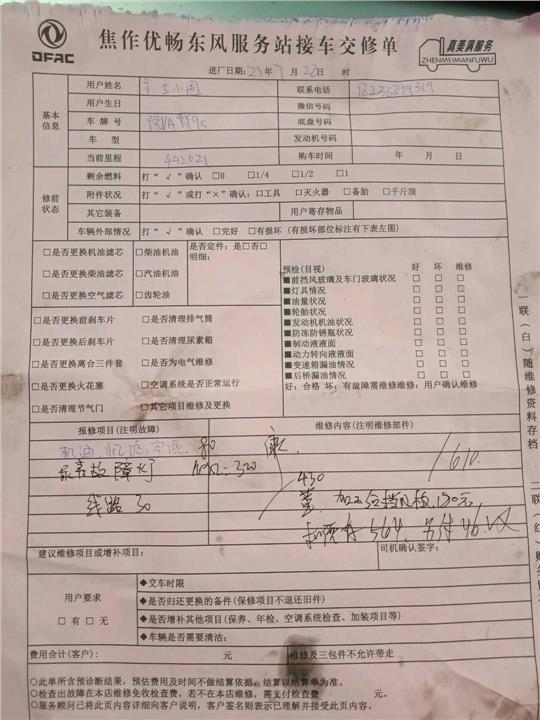 DFAC
焦作优畅东风服务站接车交修单
真美满服务
ZHENMEIMANFUWU
进厂日期:23年 月 日 时
用户姓名 联系电话
基本信息
用户生日 微信号码
车牌号 底盘号码
车型 发动机号码
当前里程 442021 购车时间 年 月 日
修前状态
剩余燃料 打“√”确认 □0 □1/4 □1/2 □1
附件状况 打“√”或打“×”确认:□工具 □灭火器 □备胎 □千斤顶
其它装备 用户寄存物品
车辆外部情况 打“√”确认 □完好 □有损坏(有损坏部位标注有下表左图)
□是否更换机油滤芯 □柴油机油 是否定件:是□否□
明细:
□是否更换柴油滤芯 □汽油机油
□是否更换空气滤芯 □齿轮油
预检(目视) 好 坏 维修
■前挡风玻璃及车门玻璃状况 □ □ □
■灯具情况 □ □ □
■油量状况 □ □ □
■轮胎状况 □ □ □
■发动机机油状况 □ □ □
■防冻防锈瓶状况 □ □ □
■制动液液面 □ □ □
■动力转向液液面 □ □ □
■变速箱漏油情况 □ □ □
■后桥漏油情况 □ □ □
好:合格 坏:有故障需维修维修:用户确认维修
□是否更换前刹车片 □是否清理排气筒
□是否更换后刹车片 □是否清理尿素箱
□是否更换离合三件套 □是否为电气维修
□是否更换火花塞 □空调系统是否正常运行
□是否清理节气门 □其它项目维修及更换
报修项目(注明故障) 维修内容(注明维修部件)
机油 机滤 空滤
尿素故障灯 =320
450
610.
线路 30
564
建议维修项目或增补项目: 司机确认签字:
用户要求
□有 □无
◆交车时限
◆是否归还更换的备件(保修项目不退还旧件)
◆是否增补其他项目(保养、年检、空调系统检查、加装项目等)
◆车辆是否需要清洁:
费用合计(客户): 元 维修及三包件不允许带走
○此单所含预诊断结果,预估费用及时间不做结算依据,结算以结算单为准。
○检查出故障在本店维修免收检查费,若不在本店维修,需支付检查费 元。
○服务顾问已将此页内容详细向客户说明,客户签名则表示已理解并接受此页内容。
一联(白)随维修资料存档
二联(红)